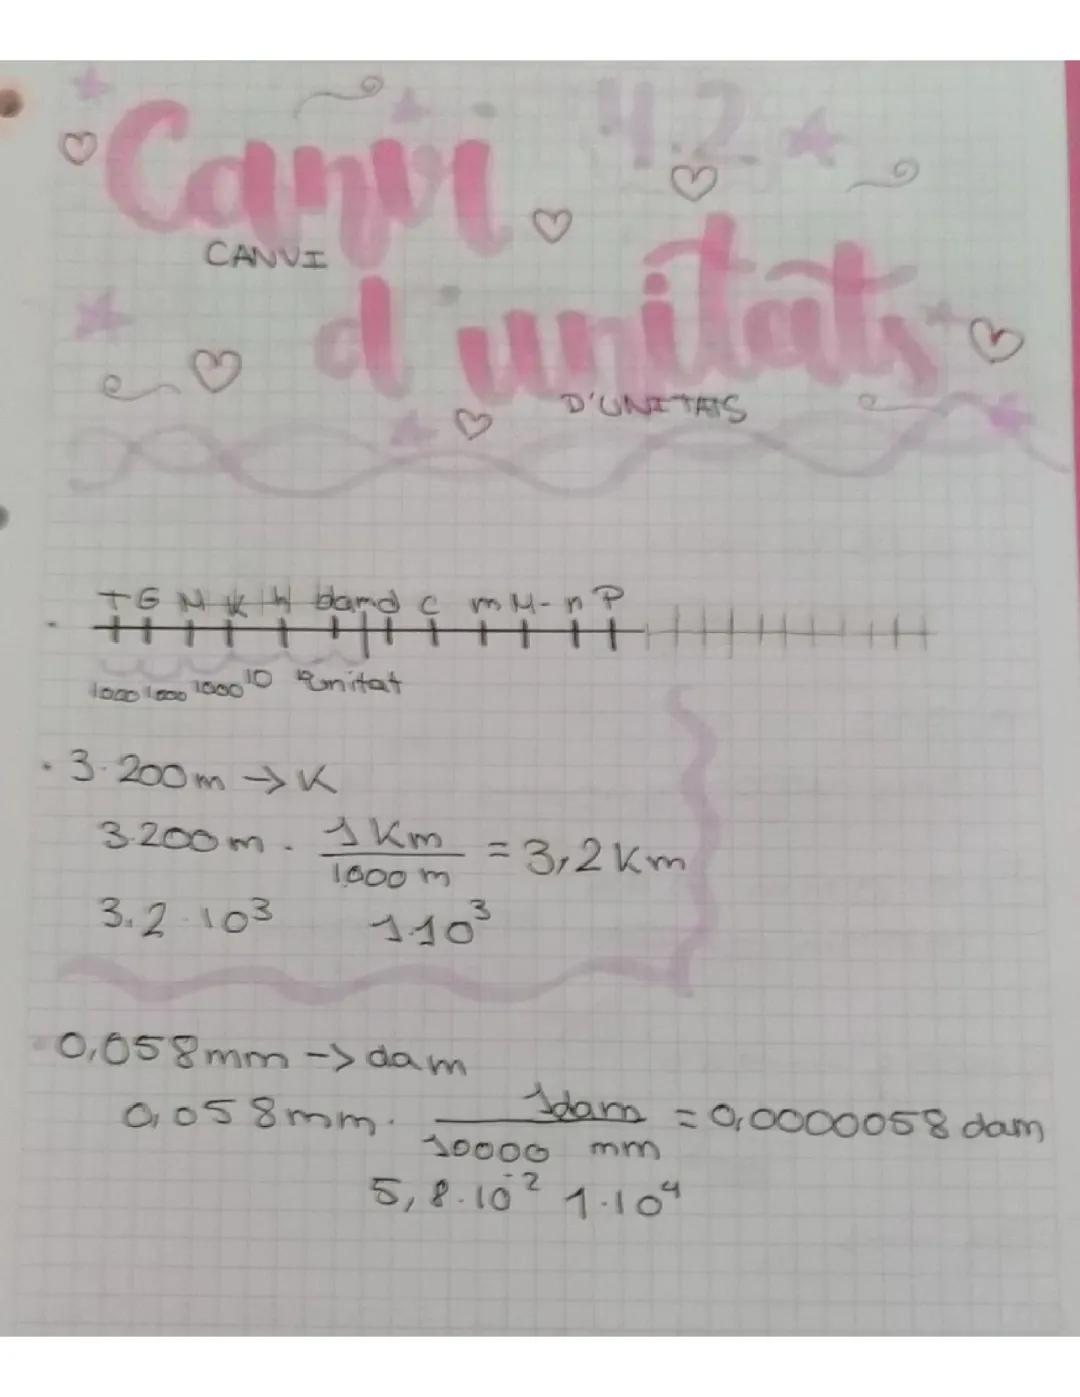 Canvi 4.2
CANVI
d'unitats
D'UNITATS
T G M K h dam d c m M- n P
1000 1000 1000 10 10 unitat
· 3.200m → K
3.200m · 1 Km / 1.000 m = 3,2 Km
3.2 · 10³ 1·10³
0,058mm -> dam
0,058mm · 1dam / 10000 mm = 0,0000058 dam
5,8·10⁻² 1·10⁴